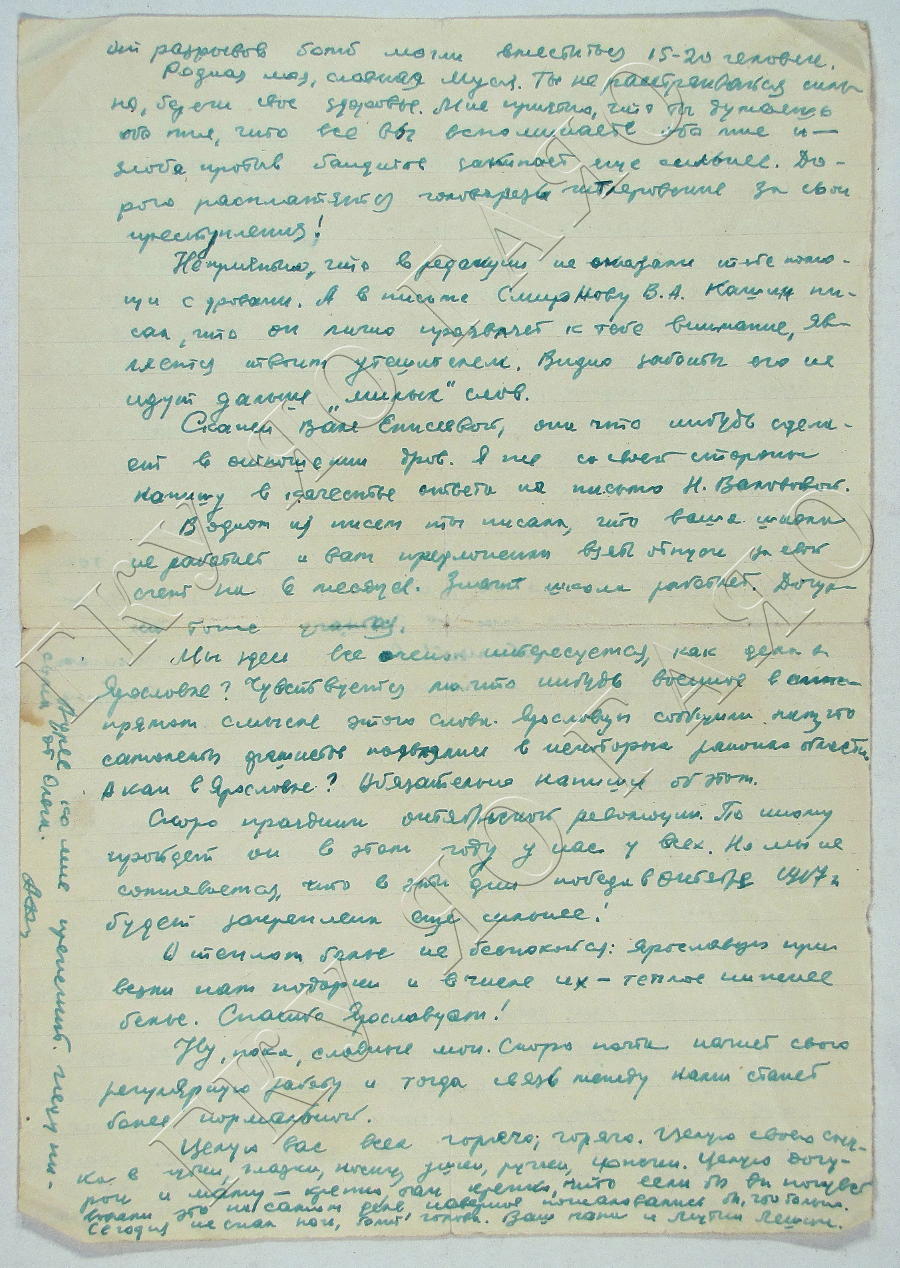 от разрывов бомб могли вместиться 15-20 человек.
Родная моя, славная Муся. Ты не расстраивайся силь-
но, береги свое здоровье. Мне приятно, что ты думаешь
обо мне, что все вы вспоминаете обо мне и
злоба против бандитов закипает еще сильнее. До-
рого расплатятся головорезы гитлеровские за свои
преступления!
Неприятно, что в редакции не оказали тебе помо-
щи с дровами. А в письме Смирнову В.А. Кашин пи-
сал, что он лично проявляет к тебе внимание, яв-
ляется твоим утешителем. Видно заботы его не
идут дальше "милых" слов.
Скажи Вале Елисеевой, она что нибудь сдела-
ет в отношении дров. Я же со своей стороны
напишу в качестве ответа на письмо Н.
В одном из писем ты писала, что ваша школа
не работает и вам предложили взять отпуск за свой
счет на 2 месяца. Значит школа работает.
тоже
Мы здесь все очень интересуемся, как дела в
Ярославле? Чувствуется ли что нибудь военное в
прямом смысле этого слова. Ярославцы сообщили нам, что
самолеты фашистов появлялись в некоторых районах области.
А как в Ярославле? Обязательно напиши об этом.
Скоро праздник октябрьской революции. По иному
пройдет он в этом году у нас у всех. Но мы не
сомневаемся, что в эти дни победа в Октябре 1917 г.
будет закреплена еще сильнее!
О теплом белье не беспокойся: ярославцы при-
везли нам подарки и в числе их – теплое нижнее
белье. Спасибо Ярославцам!
Ну, пока, славные мои. Скоро почта начнет свою
регулярную работу и тогда связь между нами станет
более нормальной.
Целую вас всех горячо, горячо. Целую свою
в губки, глазки, носик, ушки, ручки, Целую
и маму – крепко, так крепко, что если бы вы почувст-
вовали это на самом деле, наверное пожаловались бы, что больно.
Сегодня не спал ночь, болит голова. Ваш папа и Лешка.
Адрес ко мне прежний. Пишу